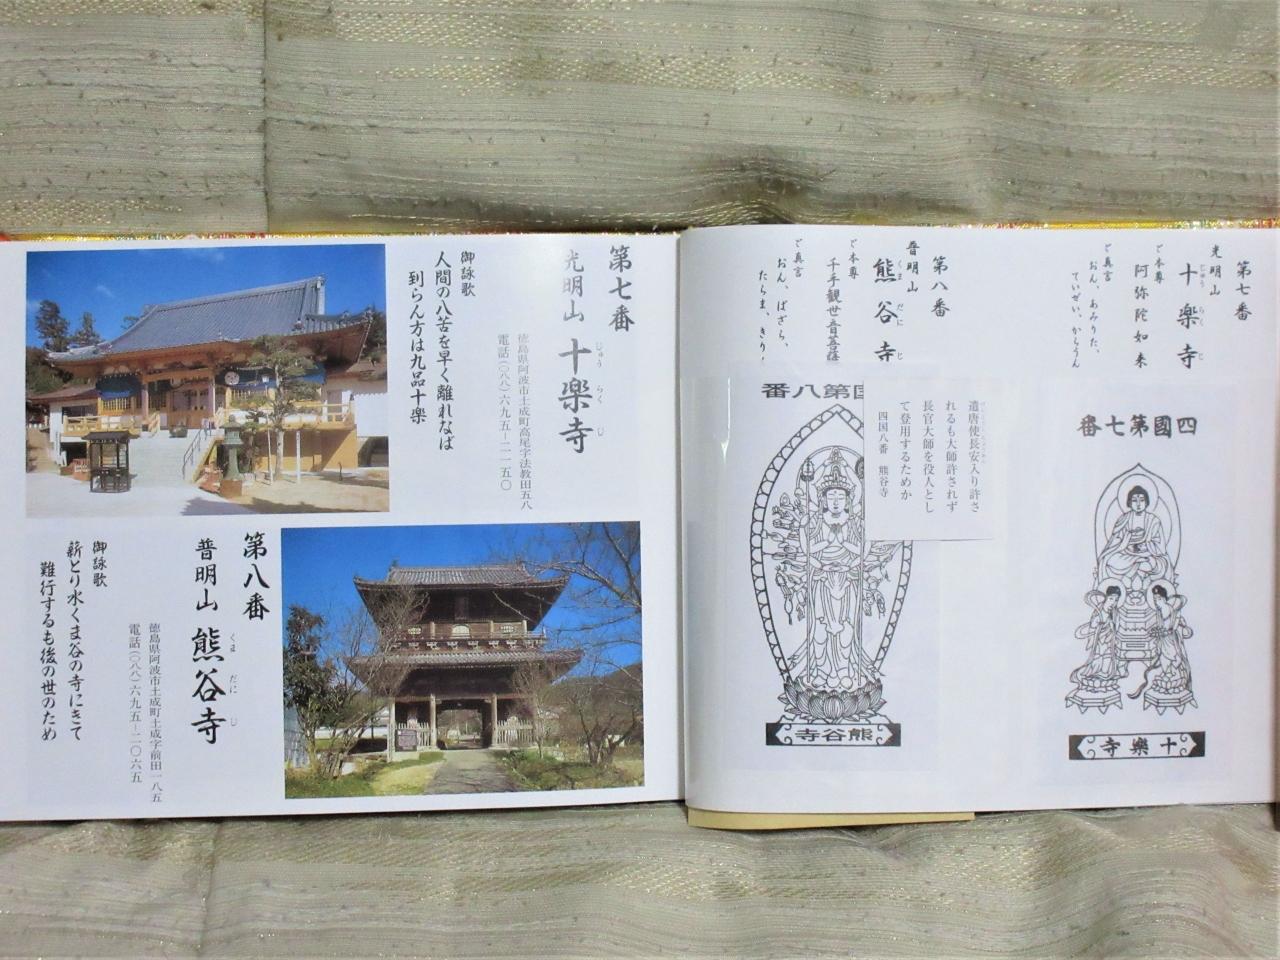 第七番
光明山 十楽寺
じゅう らく じ
徳島県阿波市土成町高尾字法教田五八
電話(〇八八)六九五―二一五〇
御詠歌
人間の八苦を早く離れなば
到らん方は九品十楽
第八番
普明山 熊谷寺
くま だに じ
徳島県阿波市土成町土成字前田一八五
電話(〇八八)六九五―二〇六五
御詠歌
薪とり水くま谷の寺にきて
難行するも後の世のため
第七番
光明山
十楽寺
じゅう らく じ
ご本尊
阿弥陀如来
ご真言
おん、あみりた、
ていぜい、からうん
第八番
普明山
熊谷寺
くま だに じ
ご本尊
千手観世音菩薩
ご真言
おん、ばざら、
たらま、きりく
四國第七番
十樂寺
國第八番
熊谷寺
遣唐使長安入り許さ
れるも大師許されず
長官大師を役人とし
て登用するためか
四国八番 熊谷寺